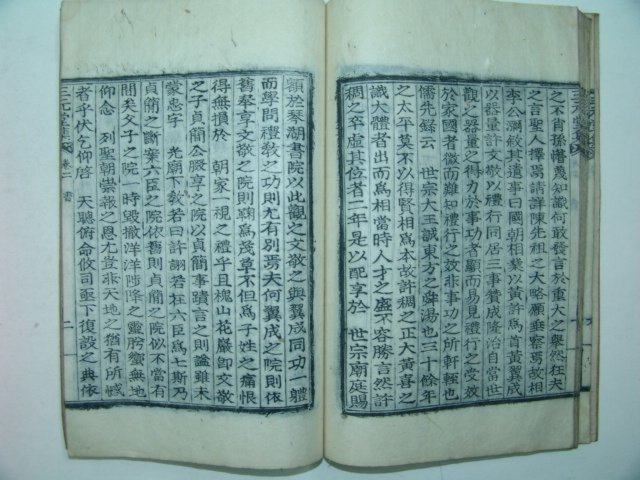 之不肖孫懵覆知識何敢發言於重大之擧然狂夫
之言聖人擇焉請詳陳先祖之大略願垂察焉故相
李公瀰敍其遺事曰國朝相業以黃許爲首黃翼成
以器量許文敬以禮行同居三事贊成隆治自當世
觀之器量之得力於事功者顯而易見禮行之受效
於家國者微而難知禮行之效非事功之所軒輊也
儒先錄云 世宗大王誠東方之舜湯也三十餘年
之太平莫不以得賢相爲本故許稠之正大黃喜之
識大體者出而爲相當時人才之盛不容勝言然許
稠之卒虛其位者二年是以配享於 世宗廟庭賜
額於琴湖書院以此觀之文敬之與翼成同功一體
而學問禮敬之功則尤有別焉夫何翼成之院則依
舊奉享文敬之院則鞠爲茂草不但爲子姓之痛恨
得無損於 朝家一視之禮乎且槐山花巖卽文敬
之子貞簡公腏享之院以貞簡事蹟言之則謚雖未
蒙忠字 光廟下敎若曰許詡若在六臣爲七斯乃
貞簡之斷案六臣之院依舊則貞簡之院似不當有
間矣父子之院一時毁撤洋洋陟降之靈髣髴無地
仰念 列聖朝崇報之恩尤豈非天地之猶有所憾
者乎伏乞仰啓 天聰俯命攸司亟下復設之典依
三元堂集 卷二 書 二